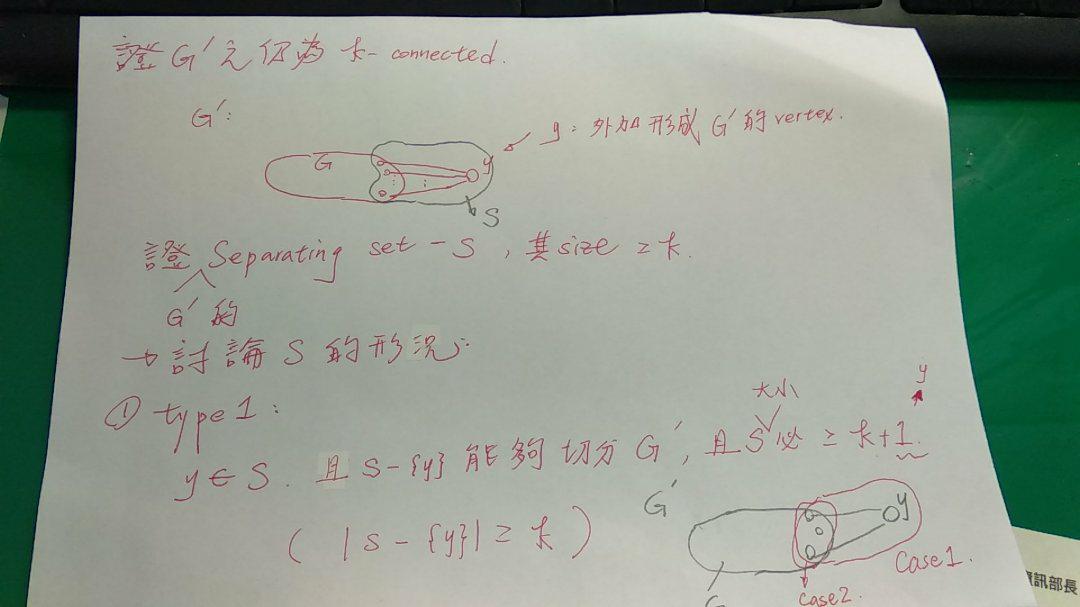 證 G′ 之仍為 k-connected.
G′:
y: 外加形成 G′ 的 vertex.
G
y
S
證 Separating set - S, 其 size ≥ k.
G′ 的
→ 討論 S 的形況:
① type 1:
大小
y
y ∈ S. 且 S-{y} 能夠切分 G′, 且 S 必 ≥ k+1.
( |S-{y}| ≥ k )
G′
y
Case 1.
Case 2.
資訊部長